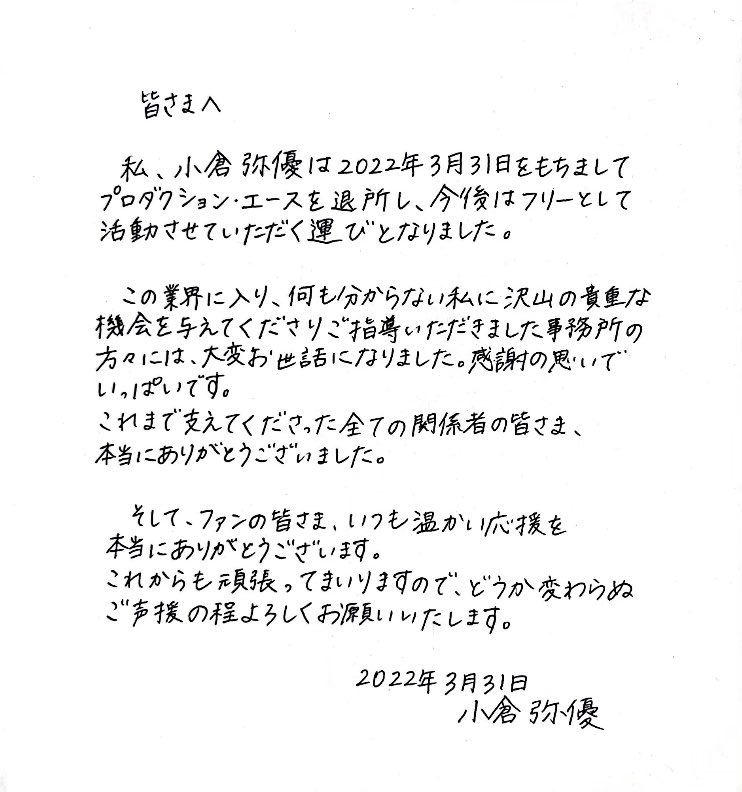 皆さまへ
私、小倉弥優は2022年3月31日をもちまして
プロダクション・エースを退所し、今後はフリーとして
活動させていただく運びとなりました。
この業界に入り、何も分からない私に沢山の貴重な
機会を与えてくださりご指導いただきました事務所の
方々には、大変お世話になりました。感謝の思いで
いっぱいです。
これまで支えてくださった全ての関係者の皆さま、
本当にありがとうございました。
そして、ファンの皆さま、いつも温かい応援を
本当にありがとうございます。
これからも頑張ってまいりますので、どうか変わらぬ
ご声援の程よろしくお願いいたします。
2022年3月31日
小倉弥優